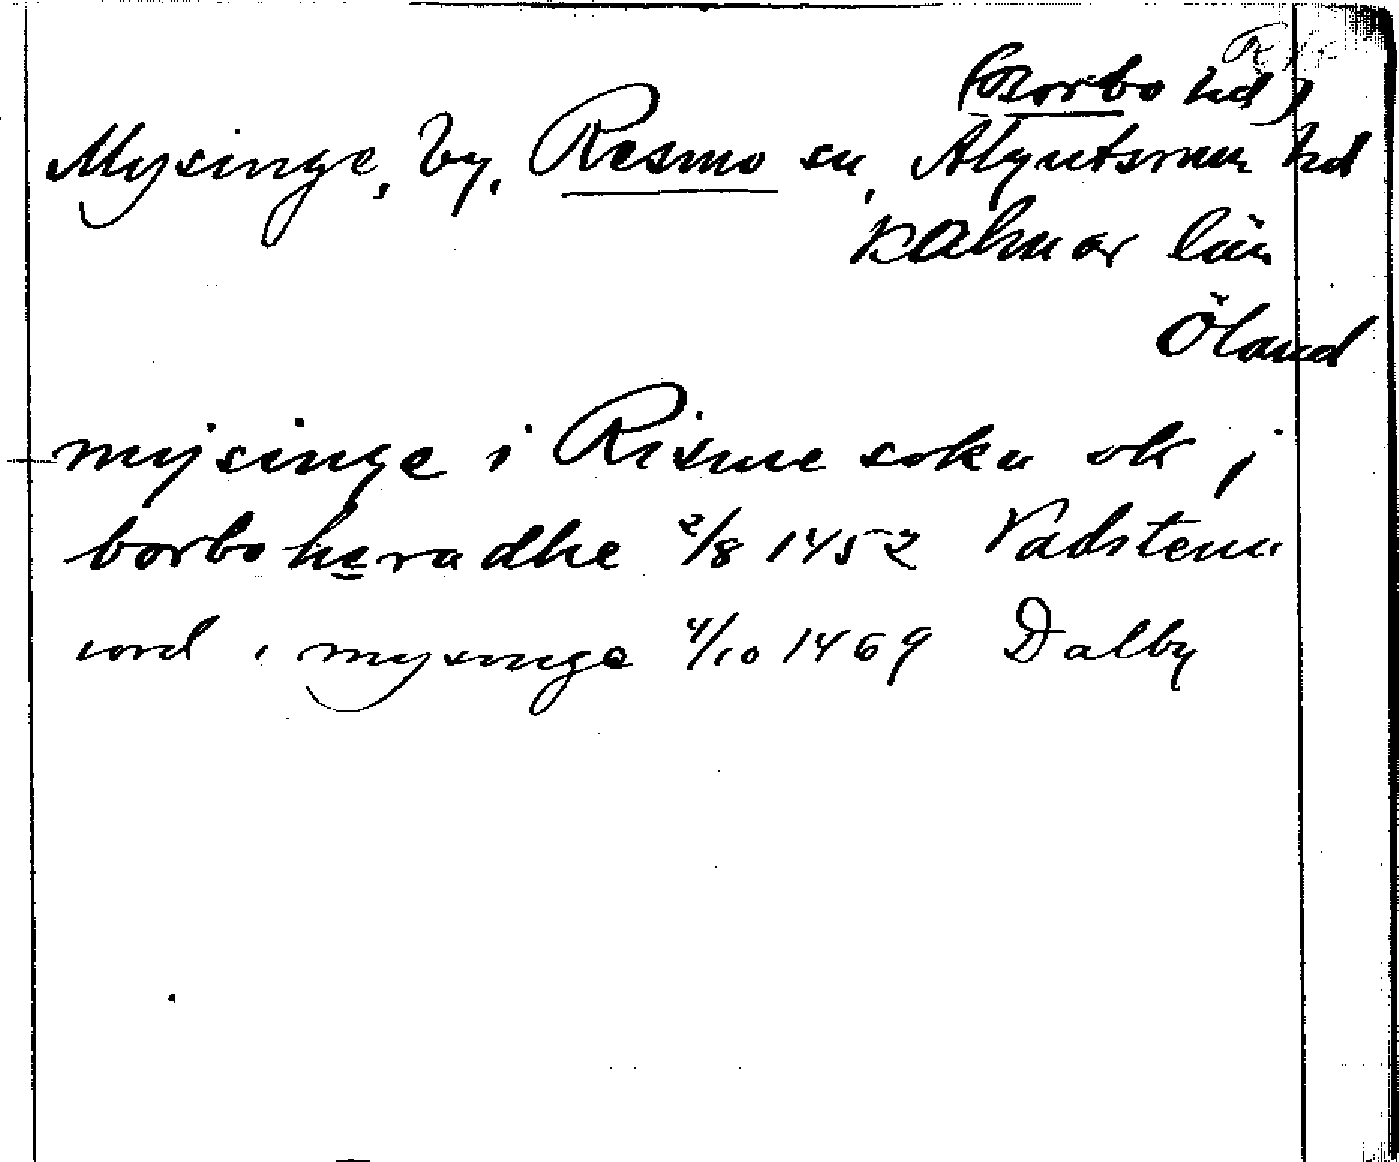 (Borbo hd)
Mysinge, by, Resmo sn, Algutsrum hd
Kalmar län
Öland
mysinge i Risme sokn ok j
borbo heradhe 2/8 1452 Vadstena
iord i mysinge 4/10 1469 Dalby